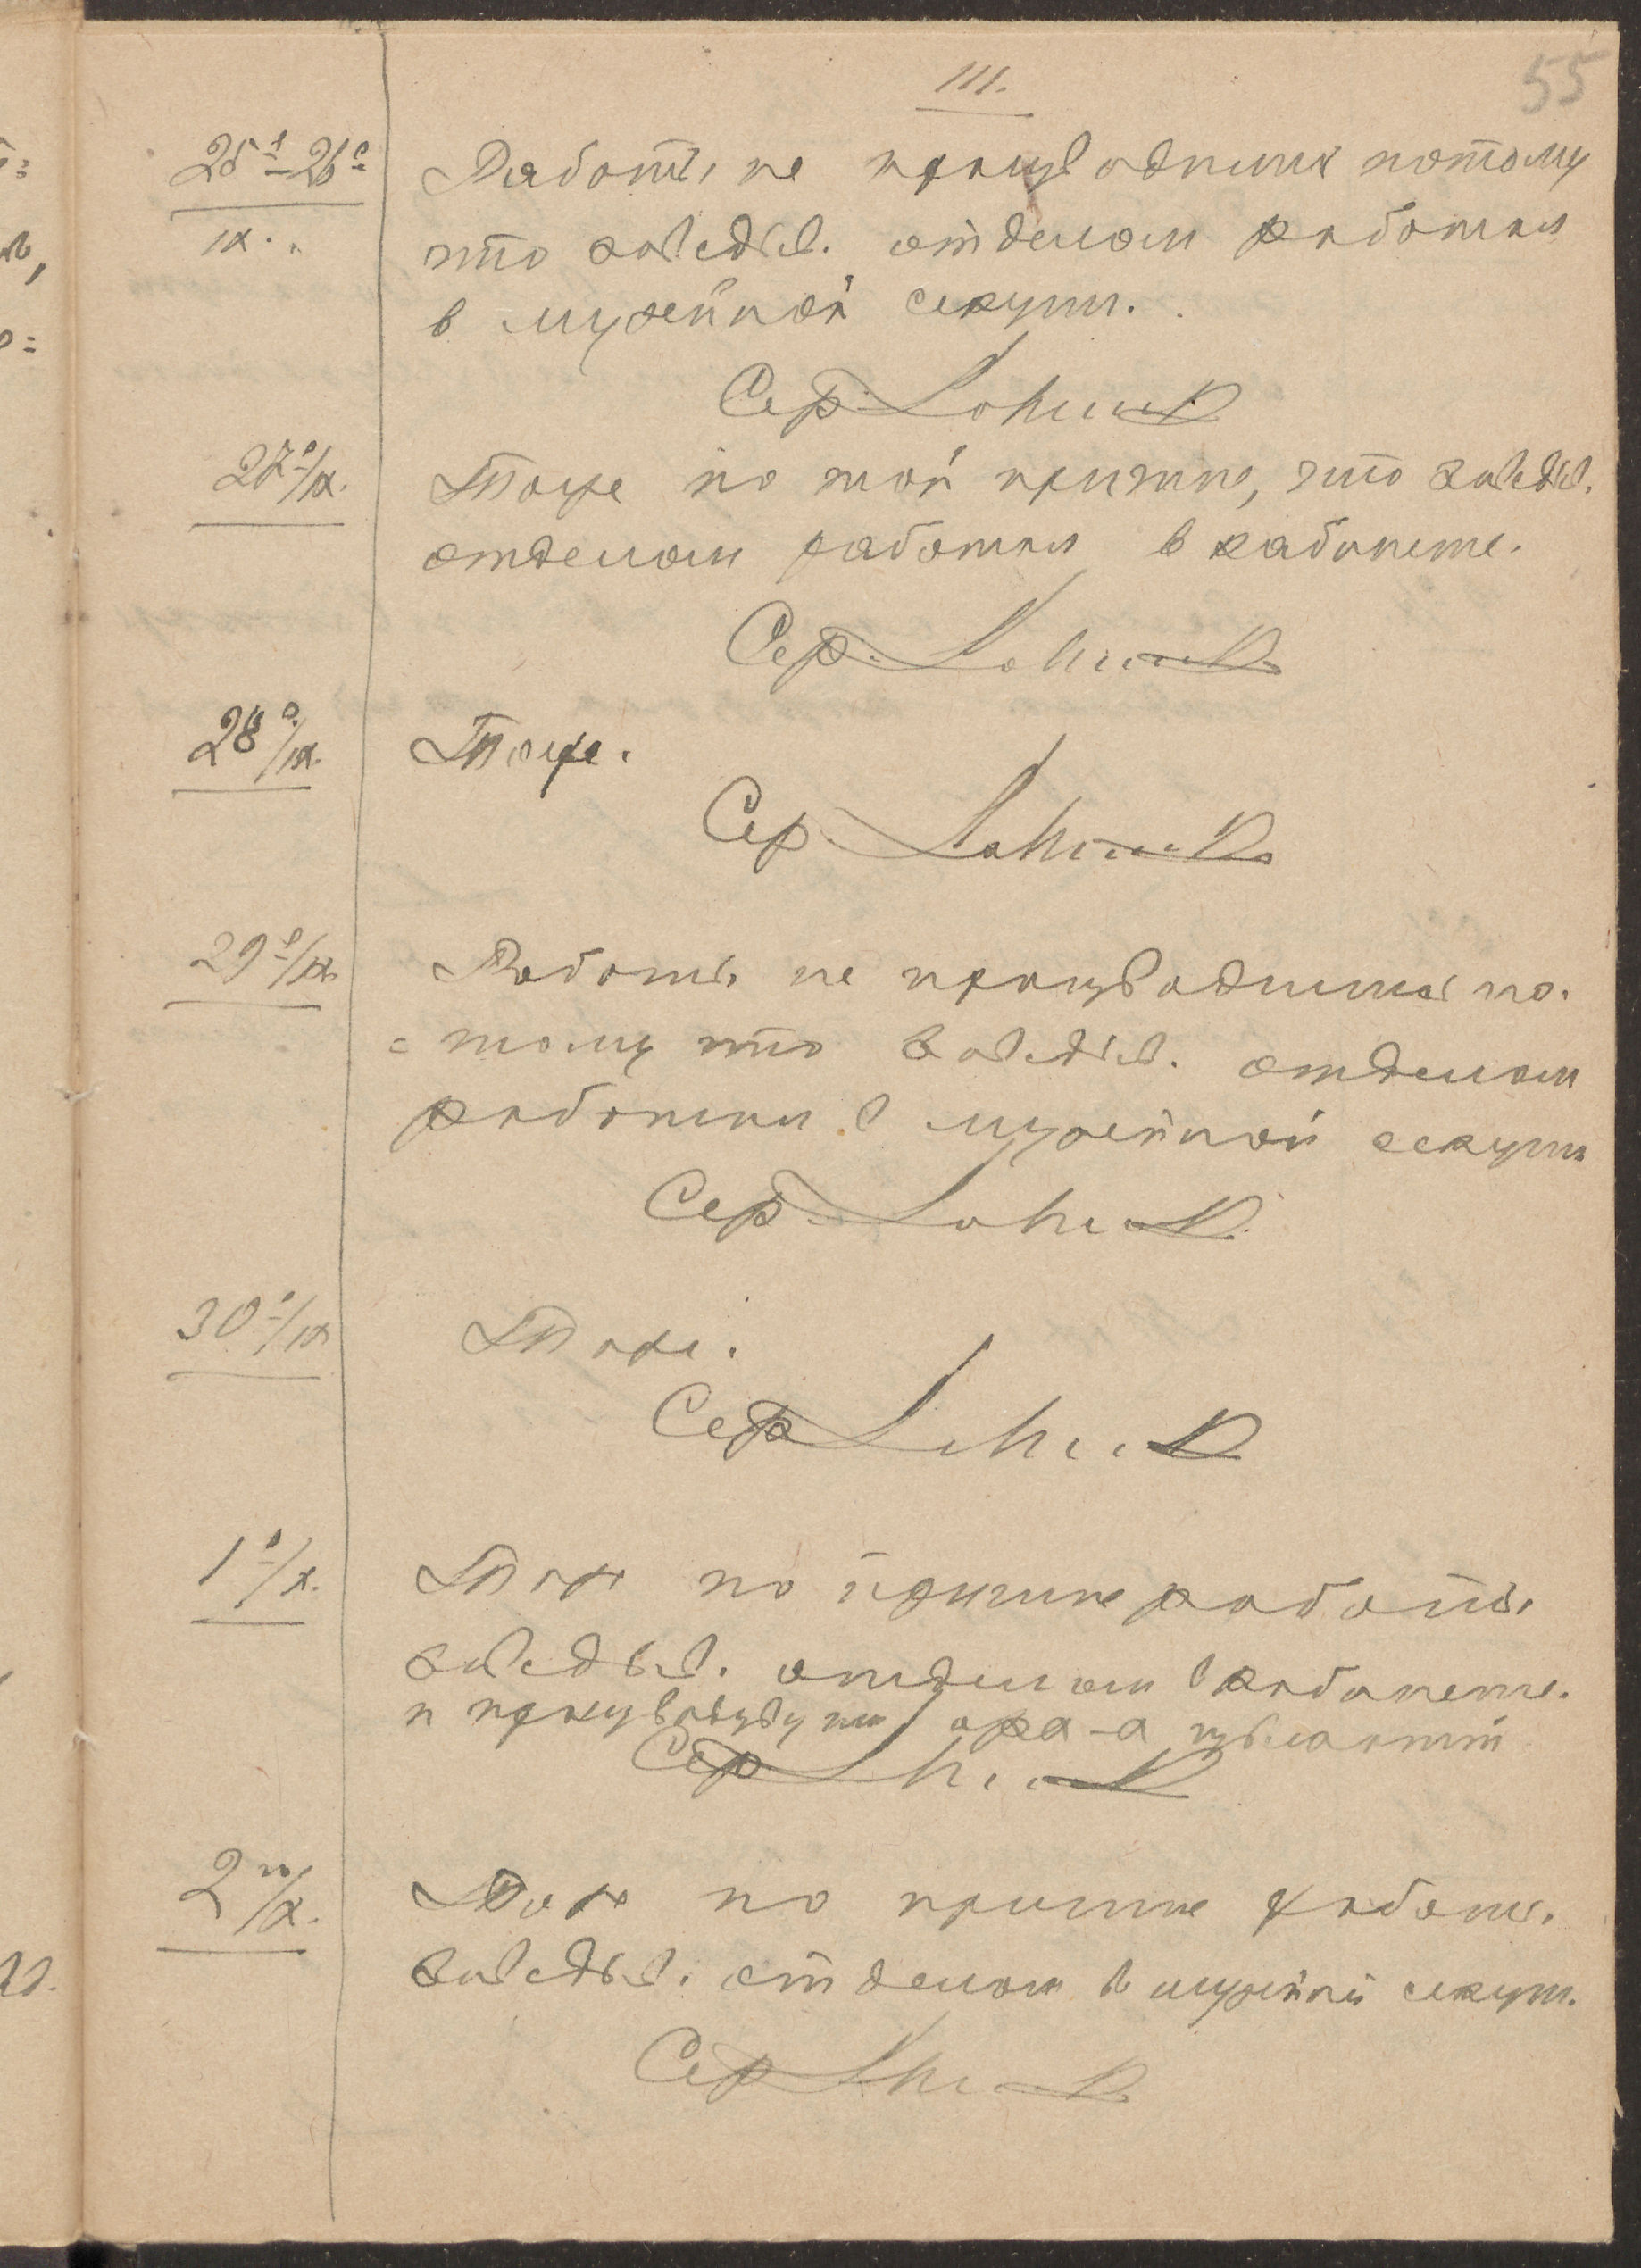 III.
55
25го-26го
IX.
Работы не производились потому
что заведыв. отделом работал
в музейной секции.
Сер.
27го/IX.
Тоже по той причине, что завед.
отделом работал в кабинете.
Сер.
28го/IX.
Тоже.
Сер.
29го/IX.
Работы не производились по-
=тому что заведыв. отделом
работал в музейной секции
Сер.
30го/IX
Тоже.
Сер
1го/X.
Тоже по причине работы
заведыв. отделом в кабинете.
и
Сер
2го/X.
Тоже по причине работы
заведыв. отделом в музейной секции.
Сер